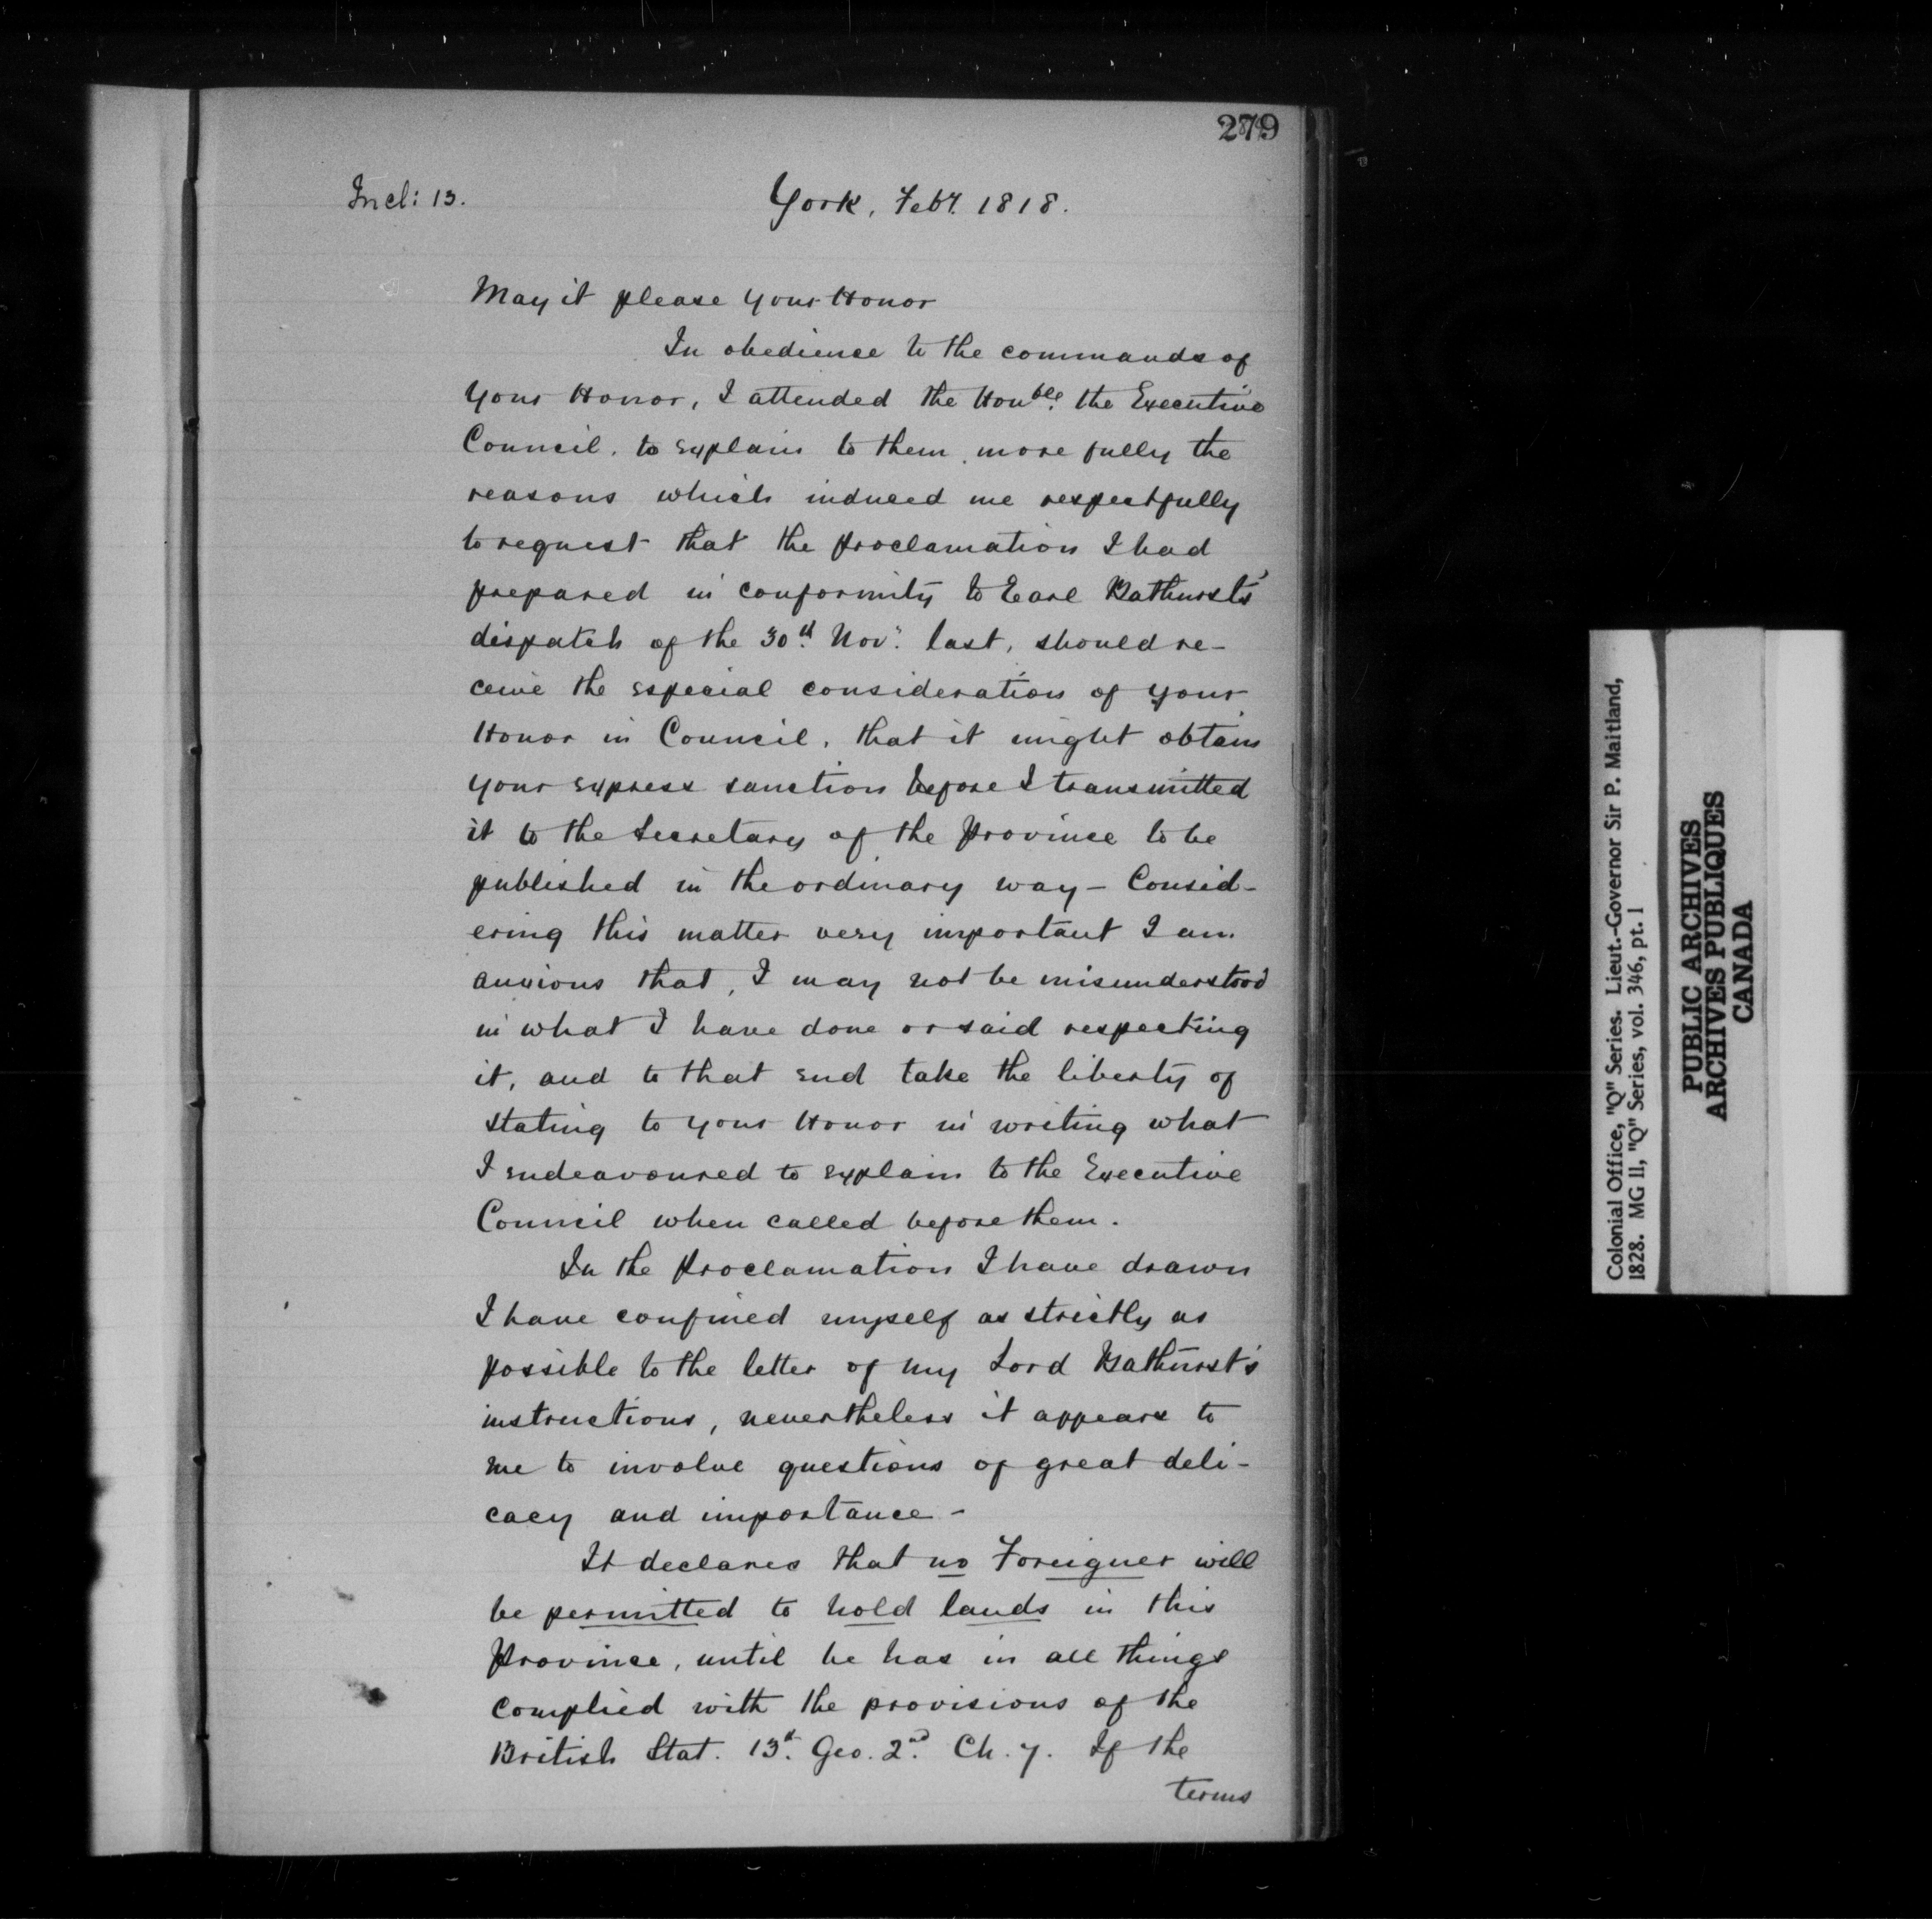 279
Incl: 13.
York, Feby. 1818.
May it please your Honor
In obedience to the commands of
your Honor, I attended the Honble. the Executive
Council, to explain to them more fully the
reasons which induced me respectfully
to request that the Proclamation I had
prepared in conformity to Earl Bathurst's
dispatch of the 30th. Novr. last, should re-
ceive the especial consideration of your
Honor in Council, that it might obtain
your express sanction before I transmitted
it to the Secretary of the Province to be
published in the ordinary way - Consid-
ering this matter very important I am
anxious that, I may not be misunderstood
in what I have done or said respecting
it, and to that end take the liberty of
stating to your Honor in writing what
I endeavoured to explain to the Executive
Council when called before them.
In the Proclamation I have drawn
I have confined myself as strictly as
possible to the letter of my Lord Bathurst's
instructions, nevertheless it appears to
me to involve questions of great deli-
cacy and importance -
It declares that no Foreigner will
be permitted to hold lands in this
Province, until he has in all things
complied with the provisions of the
British Stat. 13th. Geo. 2nd. Ch. 7. If the
terms
Colonial Office, "Q" Series. Lieut.-Governor Sir P. Maitland,
1828. MG 11, "Q" Series, vol. 346, pt. 1
PUBLIC ARCHIVES
ARCHIVES PUBLIQUES
CANADA